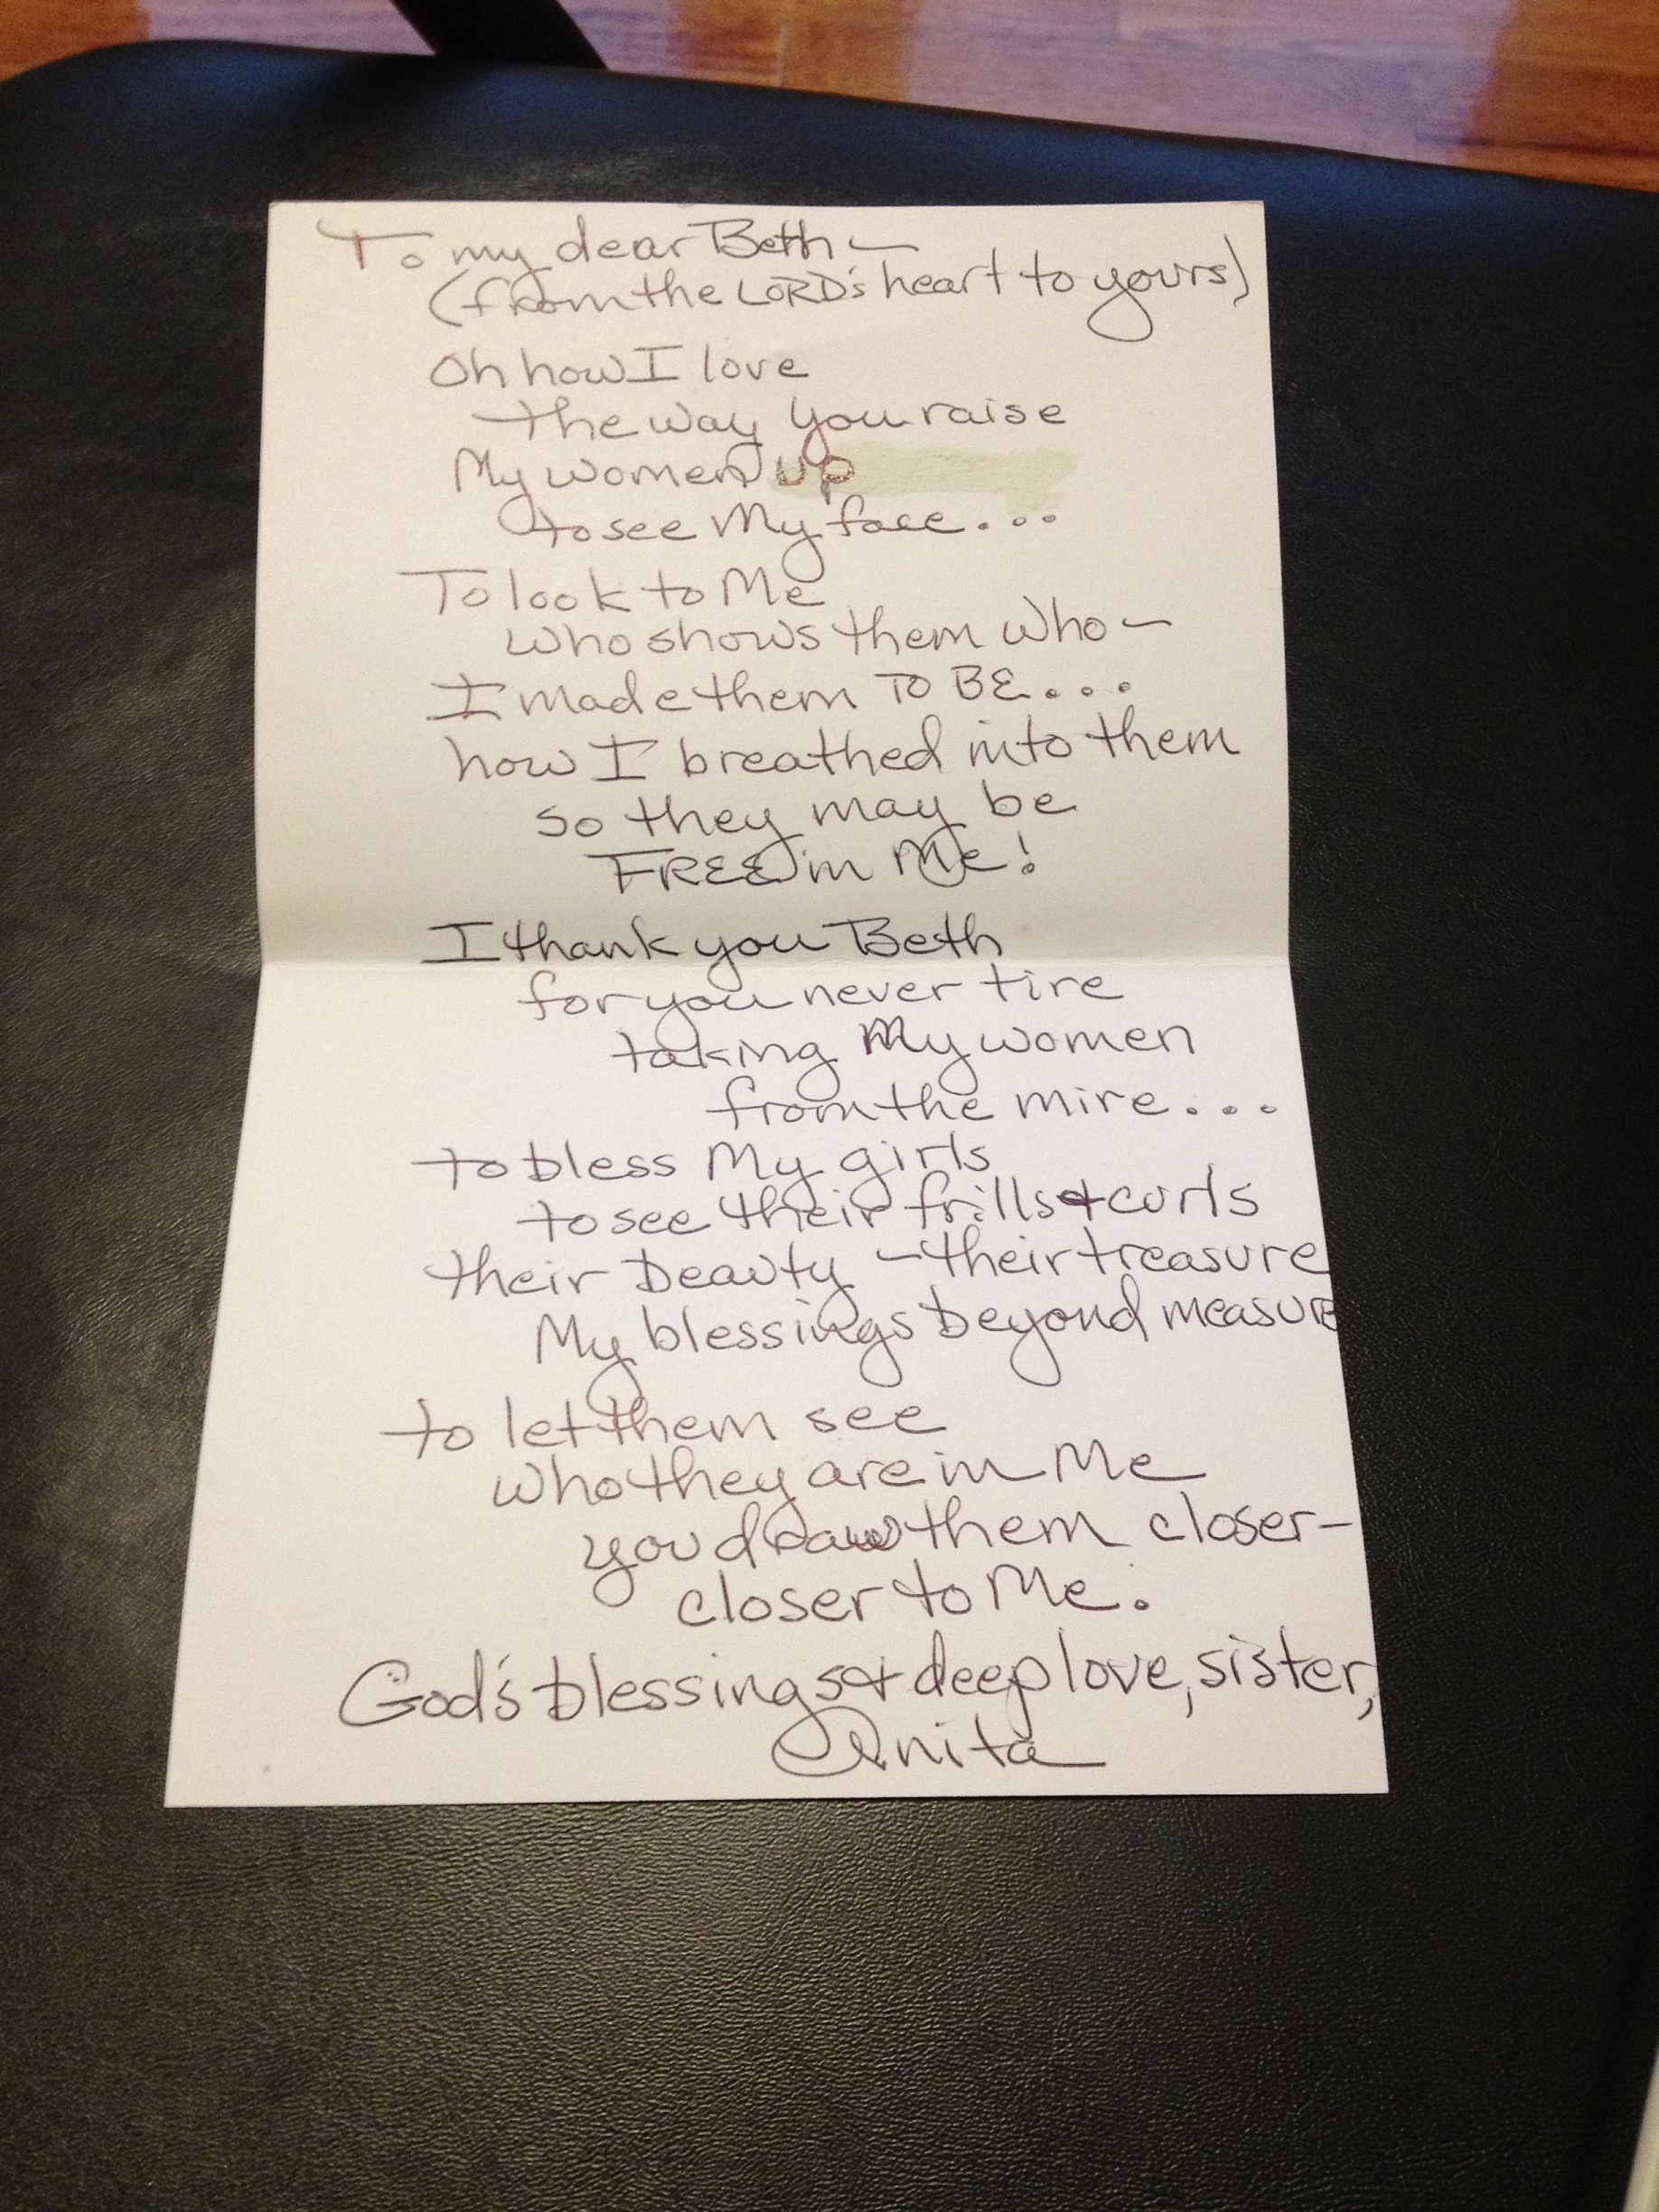 To my dear Beth —
(from the LORD's heart to yours)
Oh how I love
the way you raise
My women up
to see My face...
To look to Me
who shows them who —
I made them TO BE...
how I breathed into them
so they may be
FREE in Me!
I thank you Beth
for you never tire
taking My women
from the mire...
to bless My girls
to see their frills & curls
their beauty — their treasure
My blessings beyond measure
to let them see
who they are in Me
you draw them closer —
closer to Me.
God's blessings & deep love, sister,
Anita